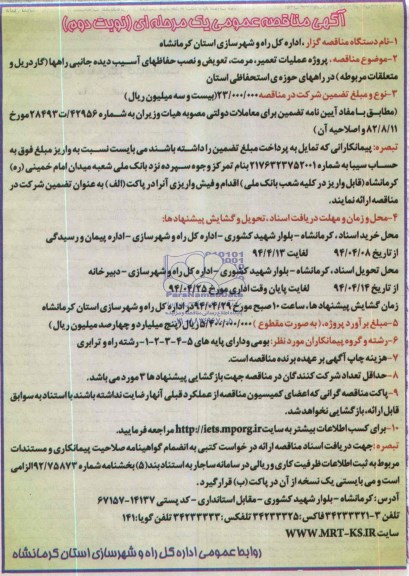 آگهی مناقصه عمومی یک مرحله ای (نوبت دوم)
۱-نام دستگاه مناقصه گزار ، اداره کل راه و شهرسازی استان کرمانشاه
۲-موضوع مناقصه ، پروژه عملیات تعمیر، مرمت، تعویض و نصب حفاظهای آسیب دیده جانبی راهها (گاردریل و
متعلقات مربوطه) در راههای حوزه ی استحفاظی استان
۳-نوع و مبلغ تضمین شرکت در مناقصه ۲۳/۰۰۰/۰۰۰ (بیست و سه میلیون ریال)
(مطابق با مفاد آیین نامه تضمین برای معاملات دولتی مصوبه هیات وزیران به شماره ۴۲۹۵۶/ت۲۸۴۹۳ مورخ
۸۲/۸/۱۱ و اصلاحیه آن)
تبصره: پیمانکارانی که تمایل به پرداخت مبلغ تضمین را داشته باشند می بایست نسبت به واریز مبلغ فوق به
حساب سیبا به شماره ۲۱۷۶۴۲۳۷۵۲۰۰۱ بنام تمرکز وجوه سپرده نزد بانک ملی شعبه میدان امام خمینی (ره)
کرمانشاه (قابل واریز در کلیه شعب بانک ملی) اقدام و فیش واریزی آنرا در پاکت (الف) به عنوان تضمین شرکت در
مناقصه ارائه نمایند.
۴-محل و زمان و مهلت دریافت اسناد ، تحویل و گشایش پیشنهادها:
محل خرید اسناد ، کرمانشاه - بلوار شهید کشوری - اداره کل راه و شهرسازی - اداره پیمان و رسیدگی
از تاریخ ۹۴/۰۴/۰۸ لغایت ۹۴/۴/۱۳
محل تحویل اسناد، کرمانشاه - بلوار شهید کشوری - اداره کل راه و شهرسازی - دبیرخانه
از تاریخ ۹۴/۰۴/۱۴ لغایت پایان وقت اداری مورخ ۹۴/۰۴/۲۵
زمان گشایش پیشنهادها، ساعت ۱۰ صبح مورخ ۹۴/۰۴/۲۹ در اداره کل راه و شهرسازی استان کرمانشاه
۵-مبلغ برآورد پروژه، (به صورت مقطوع) ۵/۴۰۰/۰۰۰/۰۰۰ ریال (پنج میلیارد و چهارصد میلیون ریال)
۶-رشته و گروه پیمانکاران مورد نظر: بومی و دارای پایه های ۵-۴-۳-۲-۱- رشته راه و ترابری
۷-هزینه چاپ آگهی بر عهده برنده مناقصه است.
۸-حداقل تعداد شرکت کنندگان در مناقصه جهت بازگشایی پیشنهادها ۳ مورد می باشد.
۹-پاکت مناقصه گرانی که اعضای کمیسیون مناقصه از عملکرد قبلی آنها رضایت نداشته باشند با استناد به سوابق
قابل ارائه، بازگشایی نخواهد شد.
۱۰-برای کسب اطلاعات بیشتر به سایت http://iets.mporg.ir مراجعه فرمایید.
تبصره: جهت دریافت اسناد مناقصه ارائه درخواست کتبی به انضمام گواهینامه صلاحیت پیمانکاری و مستندات
مربوط به ثبت اطلاعات ظرفیت کاری و ریالی در سامانه ساجار به استناد بند (۵) بخشنامه شماره ۹۲/۷۵۸۷۳ الزامی
است و می بایستی یک نسخه از آن در پاکت (ب) قرار گیرد.
آدرس: کرمانشاه - بلوار شهید کشوری - مقابل استانداری - کد پستی ۱۴۱۳۷-۶۷۱۵۷
تلفن ۳-۳۴۲۳۳۳۲۱ فاکس: ۳۴۲۳۳۳۲۵ تلفکس: ۳۴۲۳۳۳۳۳ تلفن گویا: ۱۴۱
سایت WWW.MRT-KS.IR
روابط عمومی اداره کل راه و شهرسازی استان کرمانشاه